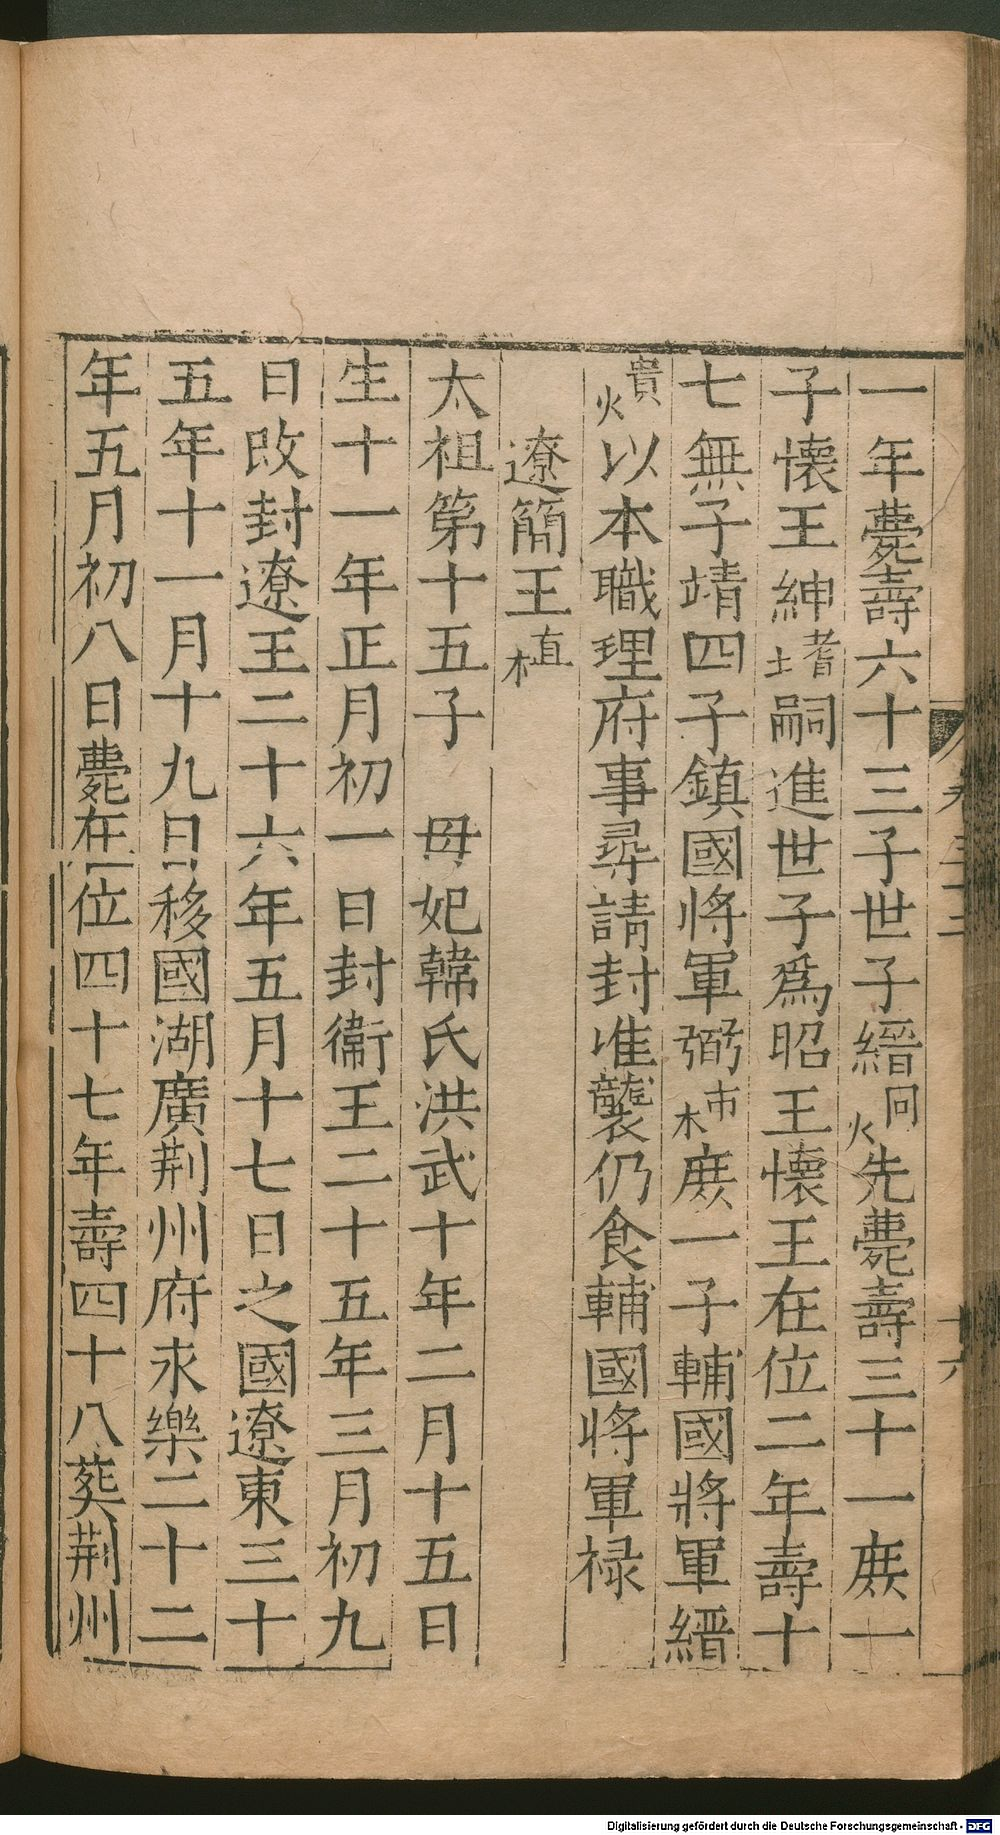 一年薨壽六十三子世子縉同火先薨壽三十一庶一
子懷王紳耆土嗣進世子爲昭王懷王在位二年壽十
七無子靖四子鎮國將軍弼市木庶一子輔國將軍縉
貴火以本職理府事尋請封准襲仍食輔國將軍禄
遼簡王直木
太祖第十五子 母妃韓氏洪武十年二月十五日
生十一年正月初一日封衛王二十五年三月初九
日改封遼王二十六年五月十七日之國遼東三十
五年十一月十九日移國湖廣荆州府永樂二十二
年五月初八日薨在位四十七年壽四十八葬荆州
Digitalisierung gefördert durch die Deutsche Forschungsgemeinschaft - DFG